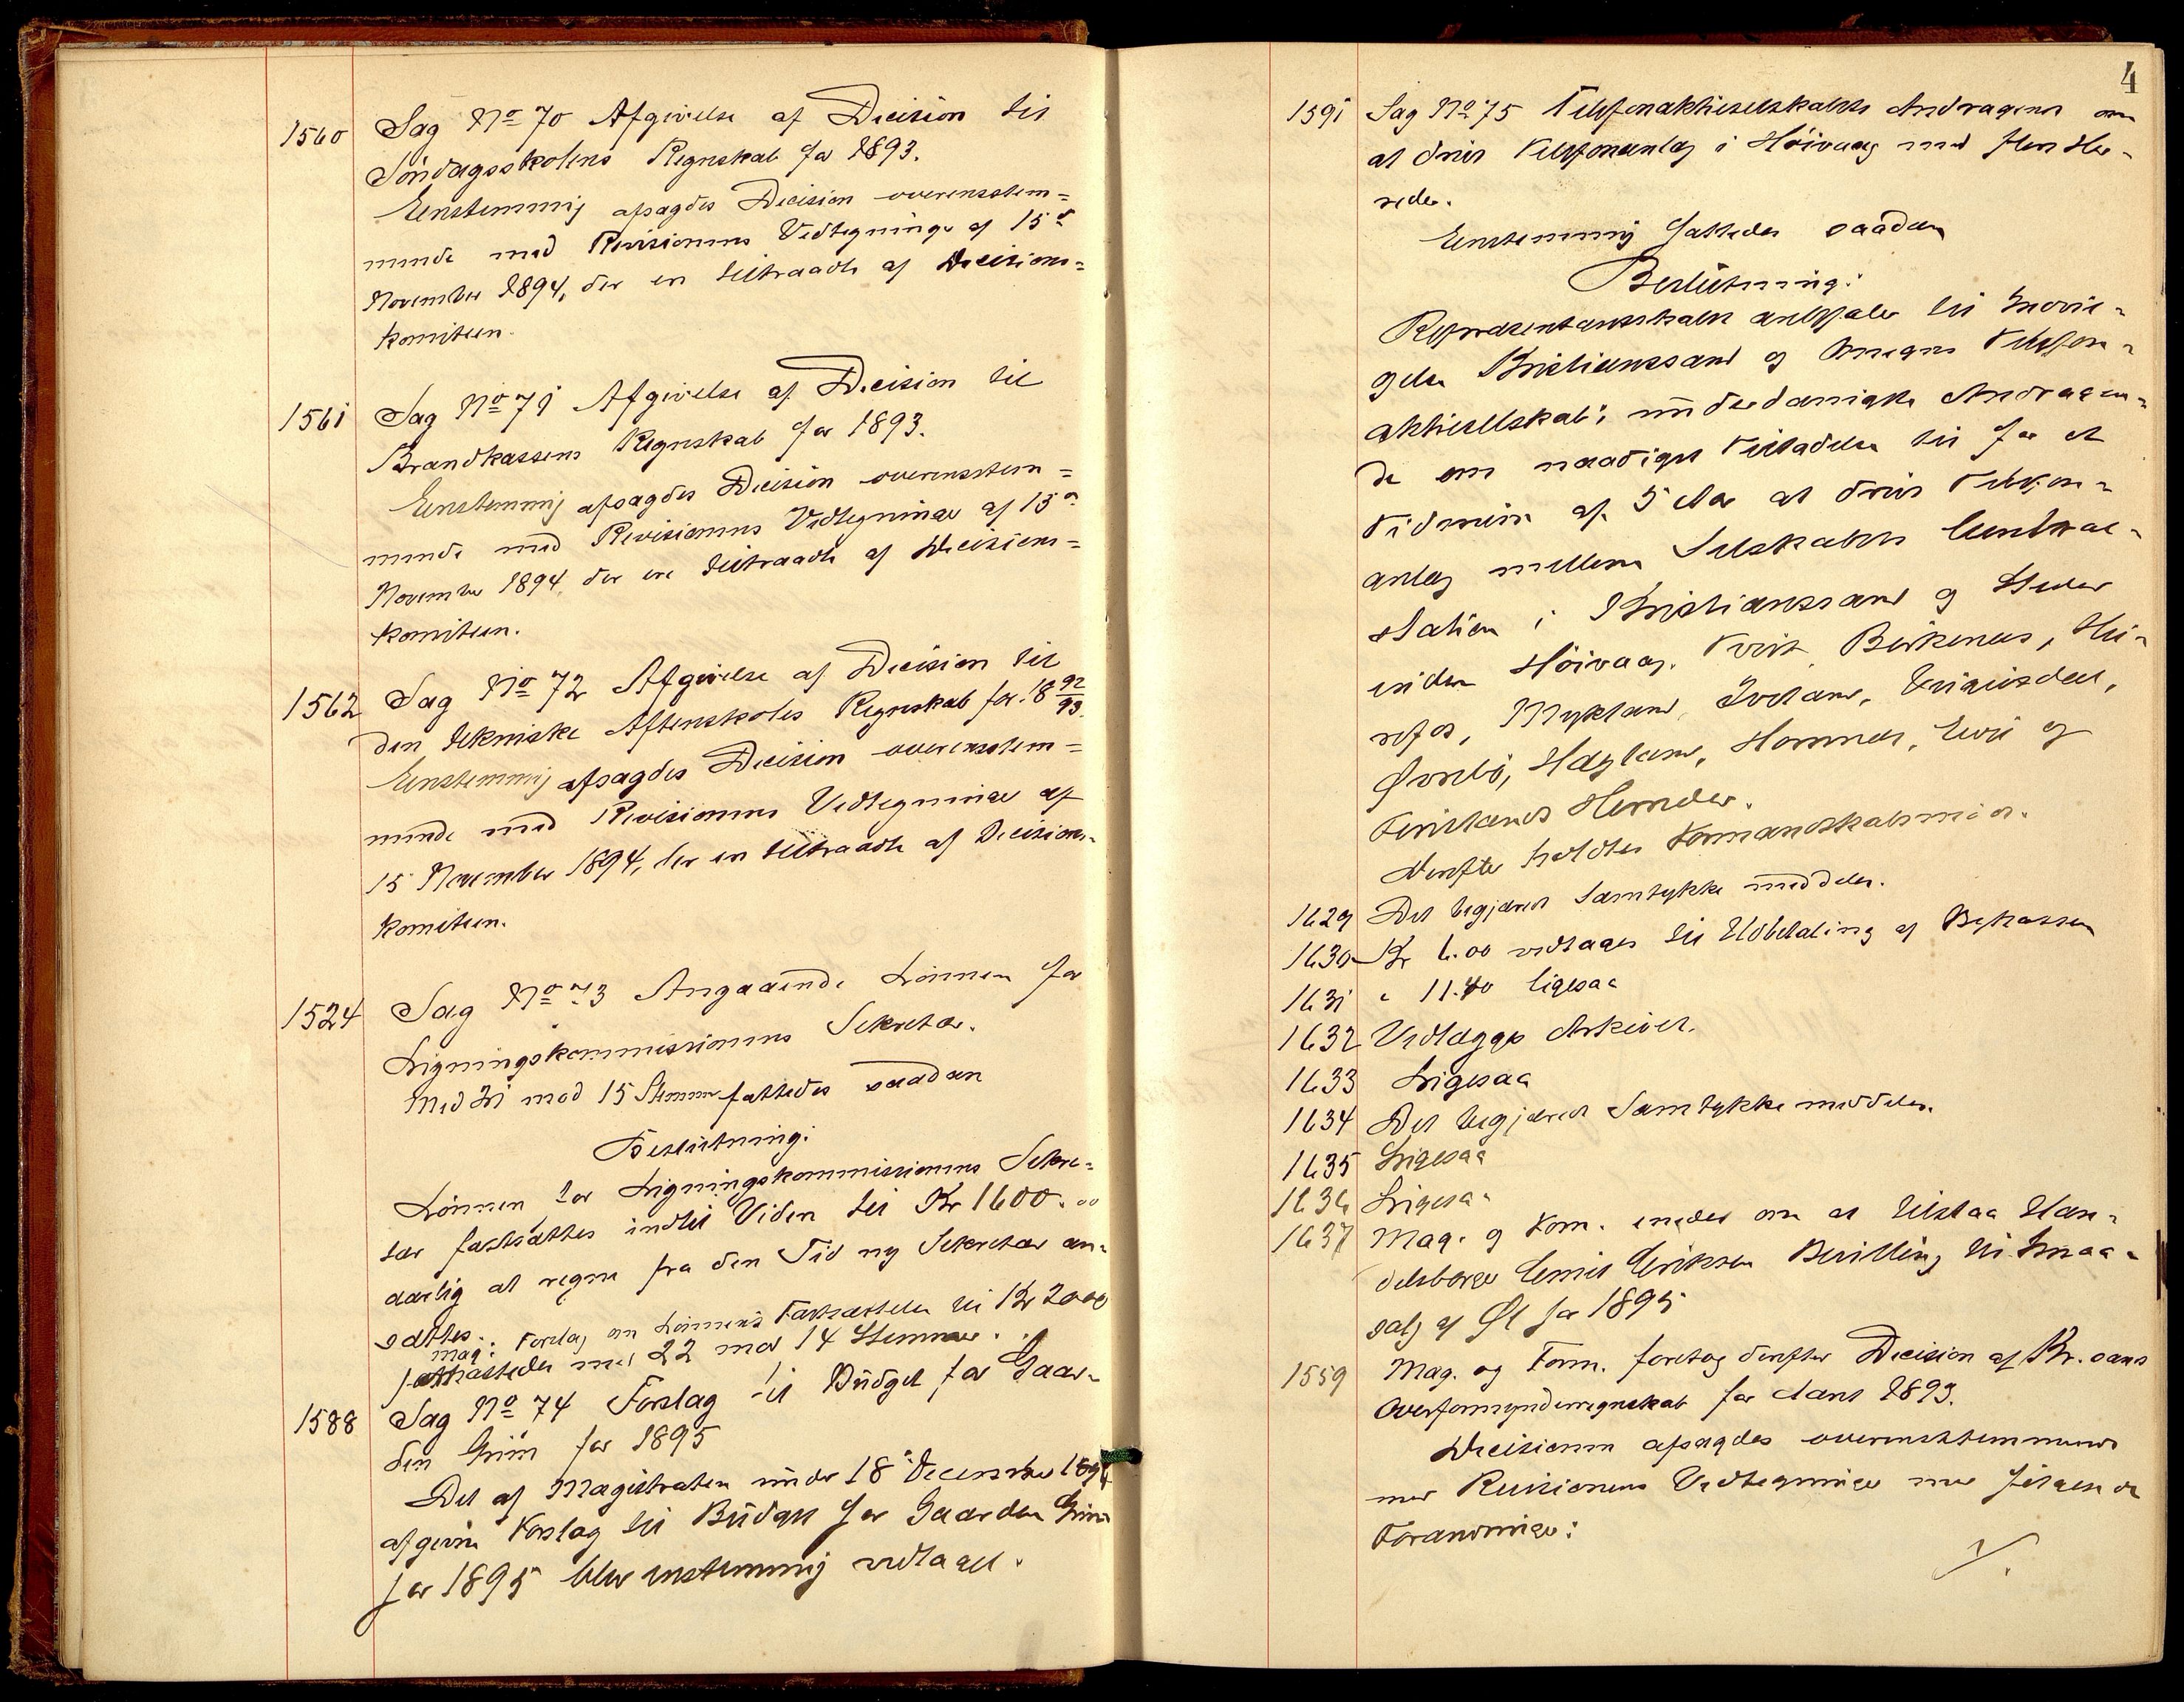 1560 Sag No 70 Afgivelse af Decision til
Söndagsskolens Regnskab for 1893.
Enstemmig afsagdes Decision overensstem=
mende med Revisionens Vedtegninger af 15de
November 1894, der er tiltraadt af Decisions=
komiteen.
1561 Sag No 71 Afgivelse af Decision til
Brandkassens Regnskab for 1893.
Enstemmig afsagdes Decision overensstem=
mende med Revisionens Vedtegninger af 15de
November 1894 der er tiltraadt af Decisions=
komiteen.
1562 Sag No 72 Afgivelse af Decision til
den tekniske Aftenskoles Regnskab for 18 92/93.
Enstemmig afsagdes Decision overensstem=
mende med Revisionens Vedtegninger af
15 November 1894, der er tiltraadt af Decisions-
komiteen.
1524 Sag No 73 Angaaende Lönnen for
Ligningskommissionens Sekretær.
Med 21 mod 15 Stemmer fattedes saadan
Beslutning:
Lönnen for Ligningskommissionens Sekre=
tær fastsættes indtil Viden til Kr 1600.00
aarlig at regne fra den Tid ny Sekretær an=
sættes.
Mag: Forslag om Lönnens Fastsættelse til Kr 2000
forkastedes med 22 mod 14 Stemmer.
1588 Sag No 74 Forslag til Budget for Gaar-
den Grim for 1895
Det af Magistraten under 18de December 1894
afgivne Forslag til Budget for Gaarden Grim
for 1895 blev enstemmig vedtaget.
4
1591 Sag No 75 Telefonaktieselskabets Andragende om
at drive Telefonanlæg i Höivaag med flere Her-
reder.
Enstemmig fattedes saadan
Beslutning:
Repræsentantskabet anbefaler til Indvil-
gelse Kristianssand og Omegns Telefon-
aktieselskabs underdanigste Andragen-
de om naadigst Tilladelse til for et
Tidsrum af 5 Aar at drive Telefon-
anlæg mellem Selskabets Central-
station i Kristianssand og Steder
inden Höivaag, Tveit, Birkenes, He-
refos, Mykland, Iveland, Vegusdal,
Øvrebö, Hægeland, Hornnes, Evje og
Finslands Herreder.
Derefter holdtes Formandskabsmöde.
1629 Det begjærede Samtykke meddeles.
1630 Kr 6.00 vedtages til Udbetaling af Bykassen
1631 " 11.40 ligesaa
1632 Vedlægges Arkivet.
1633 Ligesaa
1634 Det begjærede Samtykke meddeles.
1635 Ligesaa
1636 Ligesaa
1637 Mag. og Form. enedes om at tilstaa Han-
delsborger Emil Eriksen Bevilling til Smaa-
salg af Øl for 1895
1559 Mag. og Form. foretog derefter Decision af Kr.sands
Overformynderregnskab for Aaret 1893.
Decisionen afsagdes overensstemmende
med Revisionens Vedtegninger med fölgende
Forandringer: